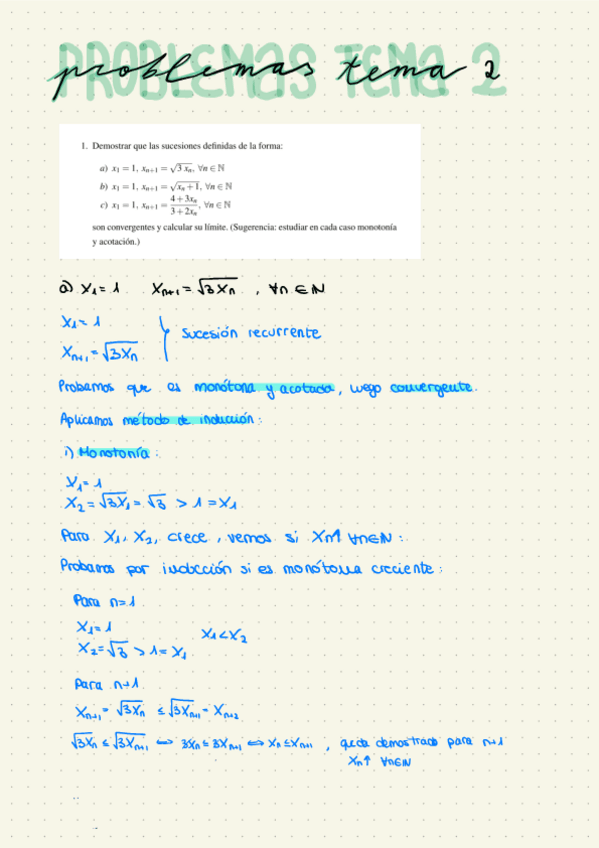 PROBLEMAS TEMA 2
problemas tema 2
1. Demostrar que las sucesiones definidas de la forma:
a) x₁ = 1, xₙ₊₁ = √(3 xₙ), ∀n ∈ ℕ
b) x₁ = 1, xₙ₊₁ = √(xₙ + 1), ∀n ∈ ℕ
c) x₁ = 1, xₙ₊₁ = (4 + 3xₙ)/(3 + 2xₙ), ∀n ∈ ℕ
son convergentes y calcular su límite. (Sugerencia: estudiar en cada caso monotonía
y acotación.)
a) X₁ = 1 Xₙ₊₁ = √(3Xₙ) , ∀n ∈ ℕ
X₁ = 1
Xₙ₊₁ = √(3Xₙ)
Sucesión recurrente
Probamos que es monótona y acotada, luego convergente.
Aplicamos método de inducción:
i) Monotonía:
X₁ = 1
X₂ = √(3X₁) = √3 > 1 = X₁
Para X₁, X₂, crece, vemos si Xₙ↑ ∀n∈ℕ:
Probamos por inducción si es monótona creciente:
Para n=1
X₁ = 1
X₂ = √3 > 1 = X₁
X₁ < X₂
Para n+1
Xₙ₊₁ = √(3Xₙ) ≤ √(3Xₙ₊₁) = Xₙ₊₂
√(3Xₙ) ≤ √(3Xₙ₊₁) ⟺ 3Xₙ ≤ 3Xₙ₊₁ ⟺ Xₙ ≤ Xₙ₊₁ , queda demostrado para n+1
Xₙ↑ ∀n∈ℕ